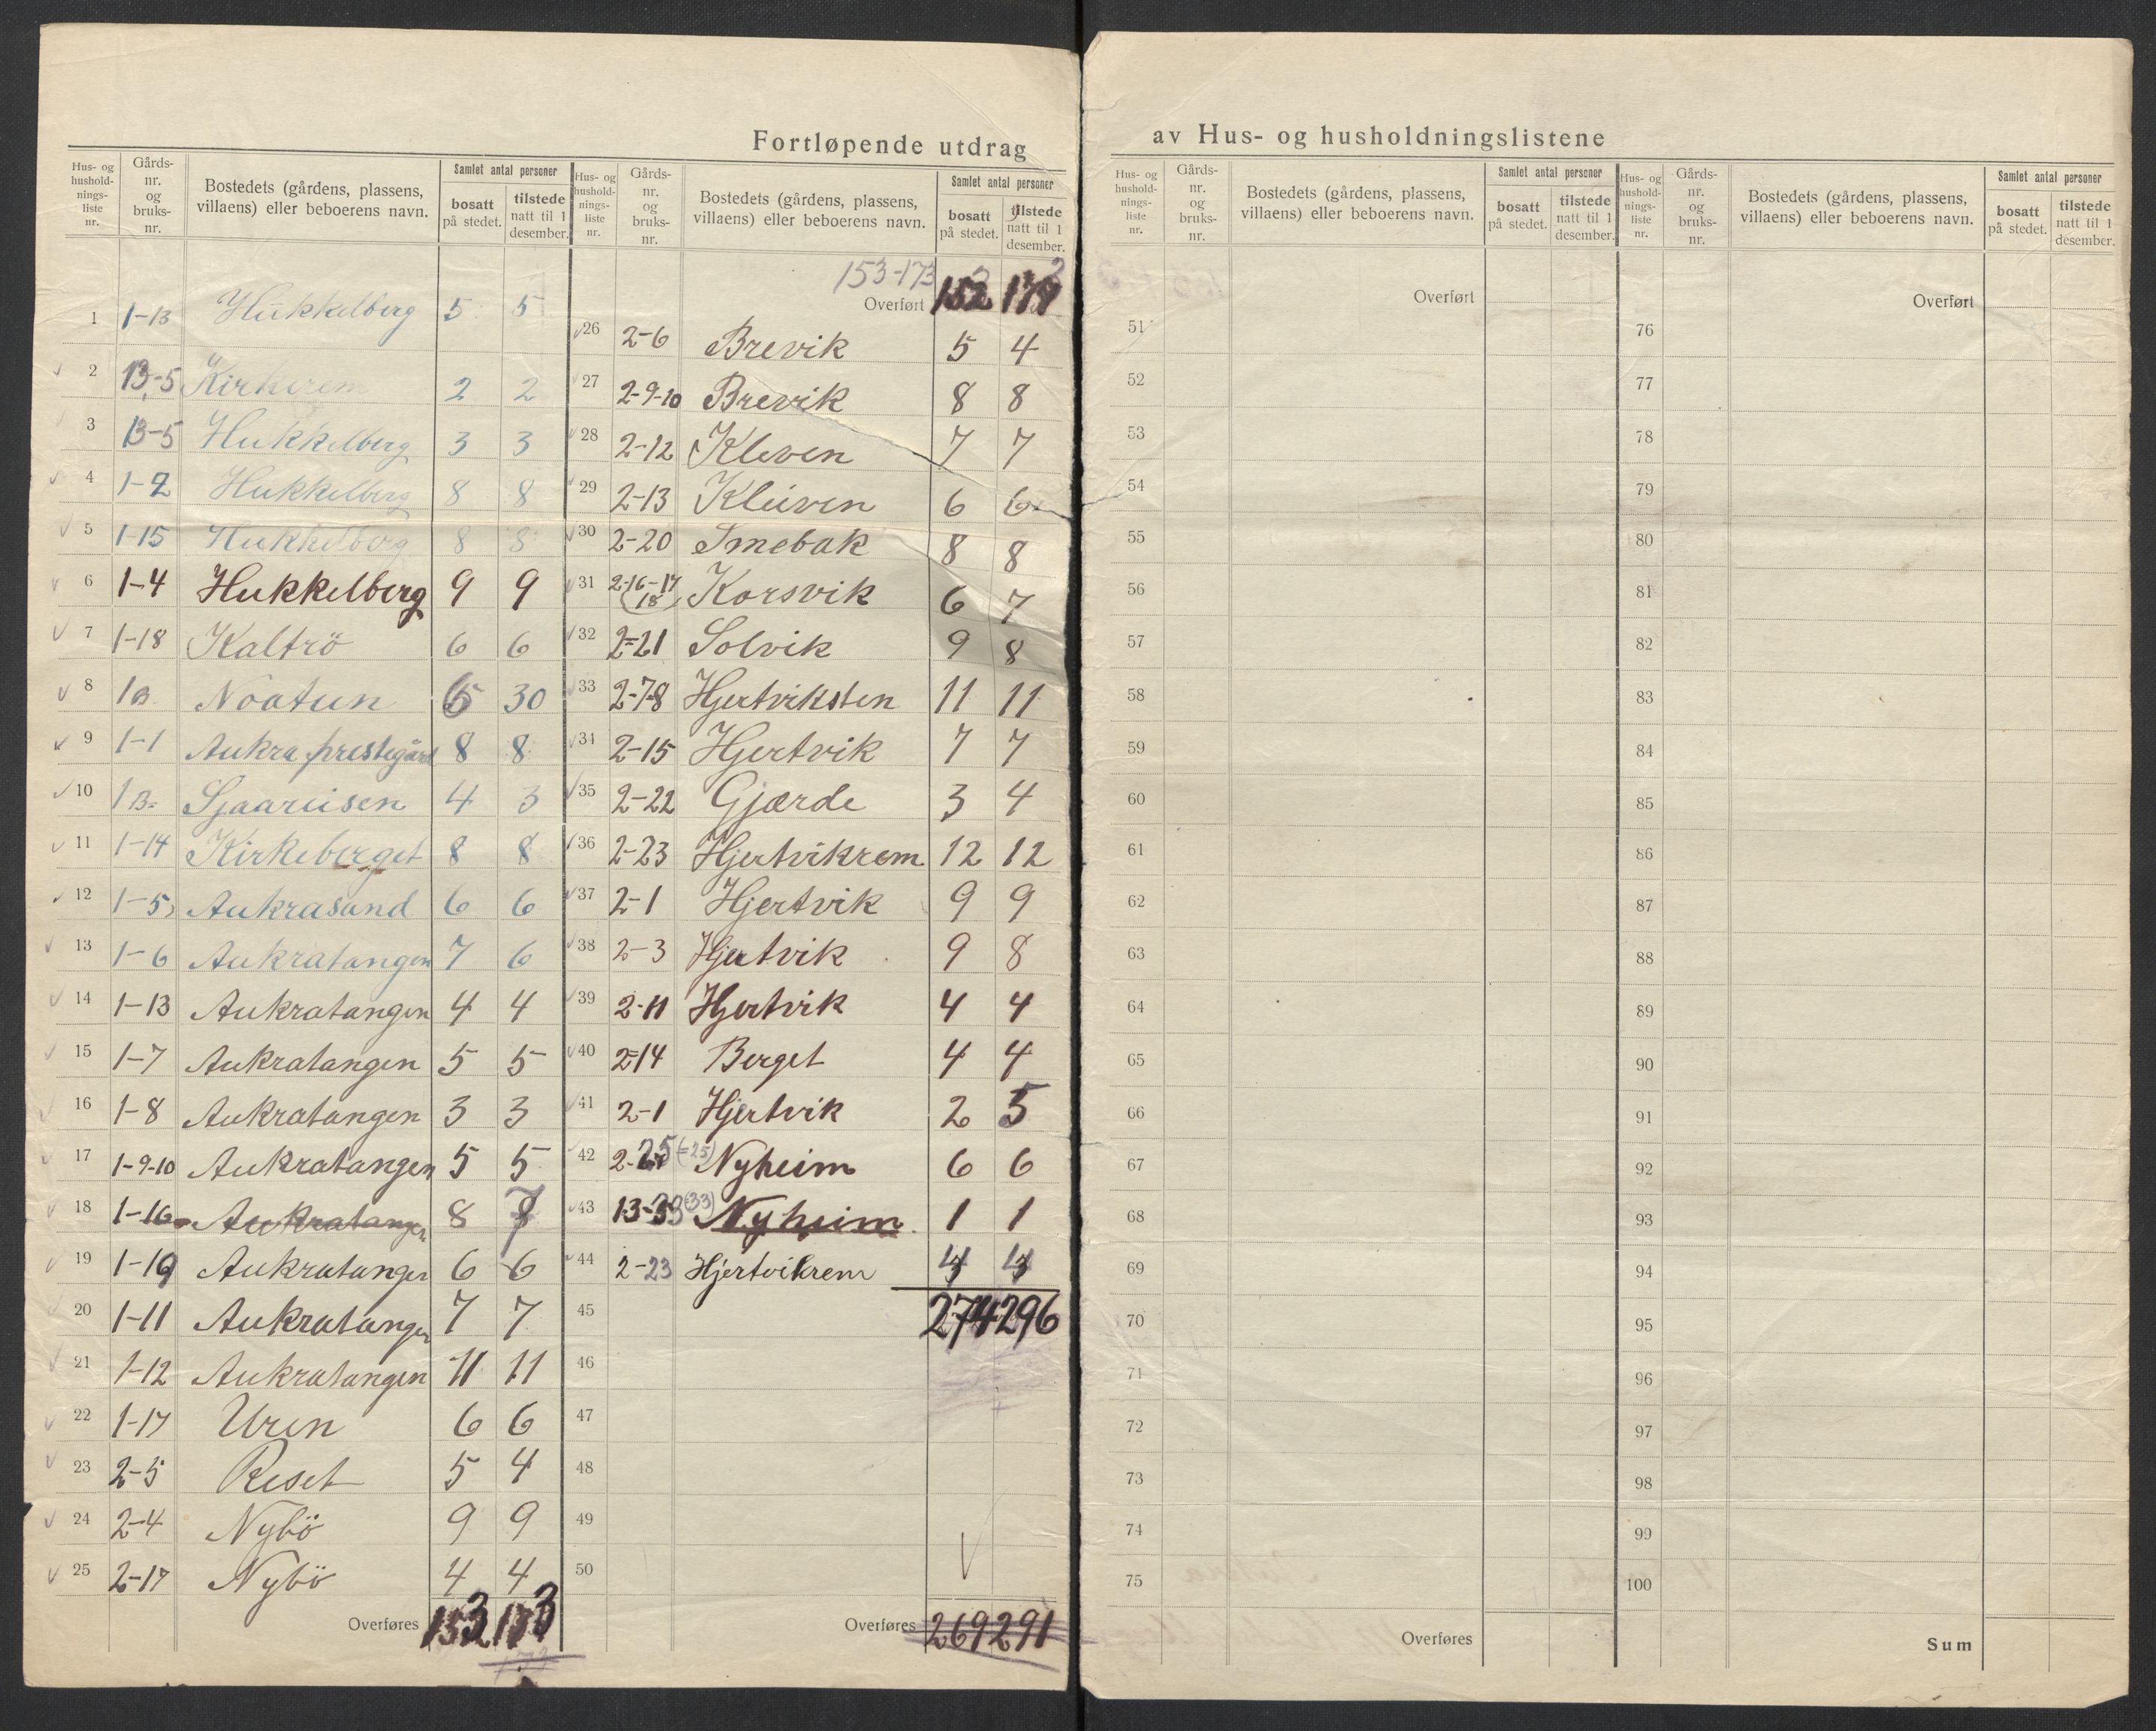 Fortløpende utdrag av Hus- og husholdningslistene
Hus- og hushold-nings-liste nr. | Gårds-nr. og bruks-nr. | Bostedets (gårdens, plassens, villaens) eller beboerens navn. | Samlet antal personer | bosatt på stedet. | tilstede natt til 1 desember.
1 1-13 Hukkelberg 5 5
2 13-5 Kirkerem 2 2
3 13-5 Hukkelberg 3 3
4 1-2 Hukkelberg 8 8
5 1-15 Hukkelberg 8 8
6 1-4 Hukkelberg 9 9
7 1-18 Kaltrö 6 6
8 1 B. Noatun 6 30
9 1-1 Aukra prestegård 8 8
10 1 B. Sjaarusen 4 3
11 1-14 Kirkeberget 8 8
12 1-5 Aukrasund 6 6
13 1-6 Aukratangen 7 6
14 1-13 Aukratangen 4 4
15 1-7 Aukratangen 5 5
16 1-8 Aukratangen 3 3
17 1-9-10 Aukratangen 5 5
18 1-16 Aukratangen 8 7
19 1-19 Aukratangen 6 6
20 1-11 Aukratangen 7 7
21 1-12 Aukratangen 11 11
22 1-17 Uren 6 6
23 2-5 Reset 5 4
24 2-4 Nybö 9 9
25 2-17 Nybö 4 4
Overføres 153 173
Hus- og hushold-nings-liste nr. | Gårds-nr. og bruks-nr. | Bostedets (gårdens, plassens, villaens) eller beboerens navn. | Samlet antal personer | bosatt på stedet. | tilstede natt til 1 desember.
153-173
Overført
26 2-6 Brevik 5 4
27 2-9-10 Brevik 8 8
28 2-12 Kleven 7 7
29 2-13 Kleiven 6 6
30 2-20 Smebak 8 8
31 2-16-17 (18) Korsvik 6 7
32 2-21 Solvik 9 8
33 2-7-8 Hjertviksten 11 11
34 2-15 Hjertvik 7 7
35 2-22 Gjærde 3 4
36 2-23 Hjertvikrem 12 12
37 2-1 Hjertvik 9 9
38 2-3 Hjertvik 9 8
39 2-11 Hjertvik 4 4
40 2-14 Berget 4 4
41 2-1 Hjertvik 2 5
42 2-25 (=25) Nyheim 6 6
43 13-33 (33) Nyheim 1 1
44 2-23 Hjertvikrem
45 274 296
46
47
48
49
50
Overføres 269 291
Hus- og hushold-nings-liste nr. | Gårds-nr. og bruks-nr. | Bostedets (gårdens, plassens, villaens) eller beboerens navn. | Samlet antal personer | bosatt på stedet. | tilstede natt til 1 desember.
Overført
51
52
53
54
55
56
57
58
59
60
61
62
63
64
65
66
67
68
69
70
71
72
73
74
75
Overføres
Hus- og hushold-nings-liste nr. | Gårds-nr. og bruks-nr. | Bostedets (gårdens, plassens, villaens) eller beboerens navn. | Samlet antal personer | bosatt på stedet. | tilstede natt til 1 desember.
Overført
76
77
78
79
80
81
82
83
84
85
86
87
88
89
90
91
92
93
94
95
96
97
98
99
100
Sum